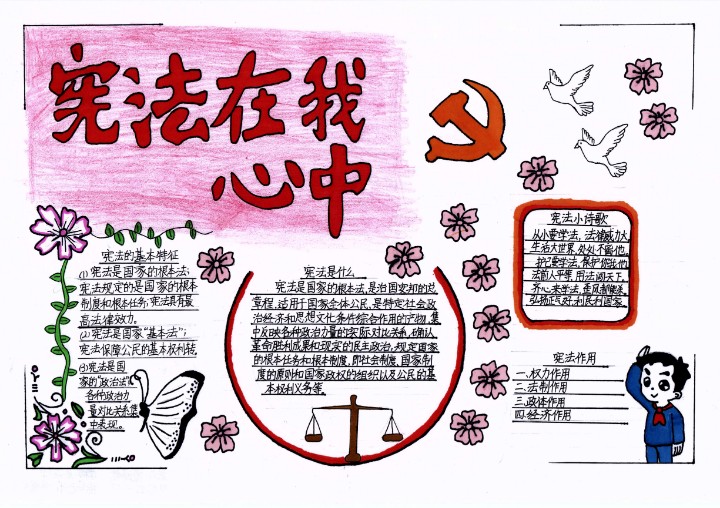 宪法在我
心中
宪法的基本特征
(1)宪法是国家的根本法;
宪法规定的是国家的根本
制度和根本任务;宪法具有最
高法律效力。
(2)宪法是国家“基本法”;
宪法保障公民的基本权利转
(3)宪法是国
家的“政治法”
各种政治力
量对比关系集
中表现。
宪法是什么
宪法是国家的根本法,是治国安邦的总
章程,适用于国家全体公民,是特定社会政
治经济和思想文化条件综合作用的产物,集
中反映各种政治力量的实际对比关系,确认
革命胜利成果和现实的民主政治,规定国家
的根本任务和根本制度,即社会制度、国家制
度的原则和国家政权的组织以及公民的基
本权利义务等。
宪法小诗歌
从小要学法,法律威力大,
生活大世界,处处不离他。
护己要学法,保护你我他,
法前人平等,用法闯天下。
齐心来学法,歪风都能杀,
弘扬正气好,利民利国家。
宪法作用
一.权力作用
二.法制作用
三.政体作用
四.经济作用